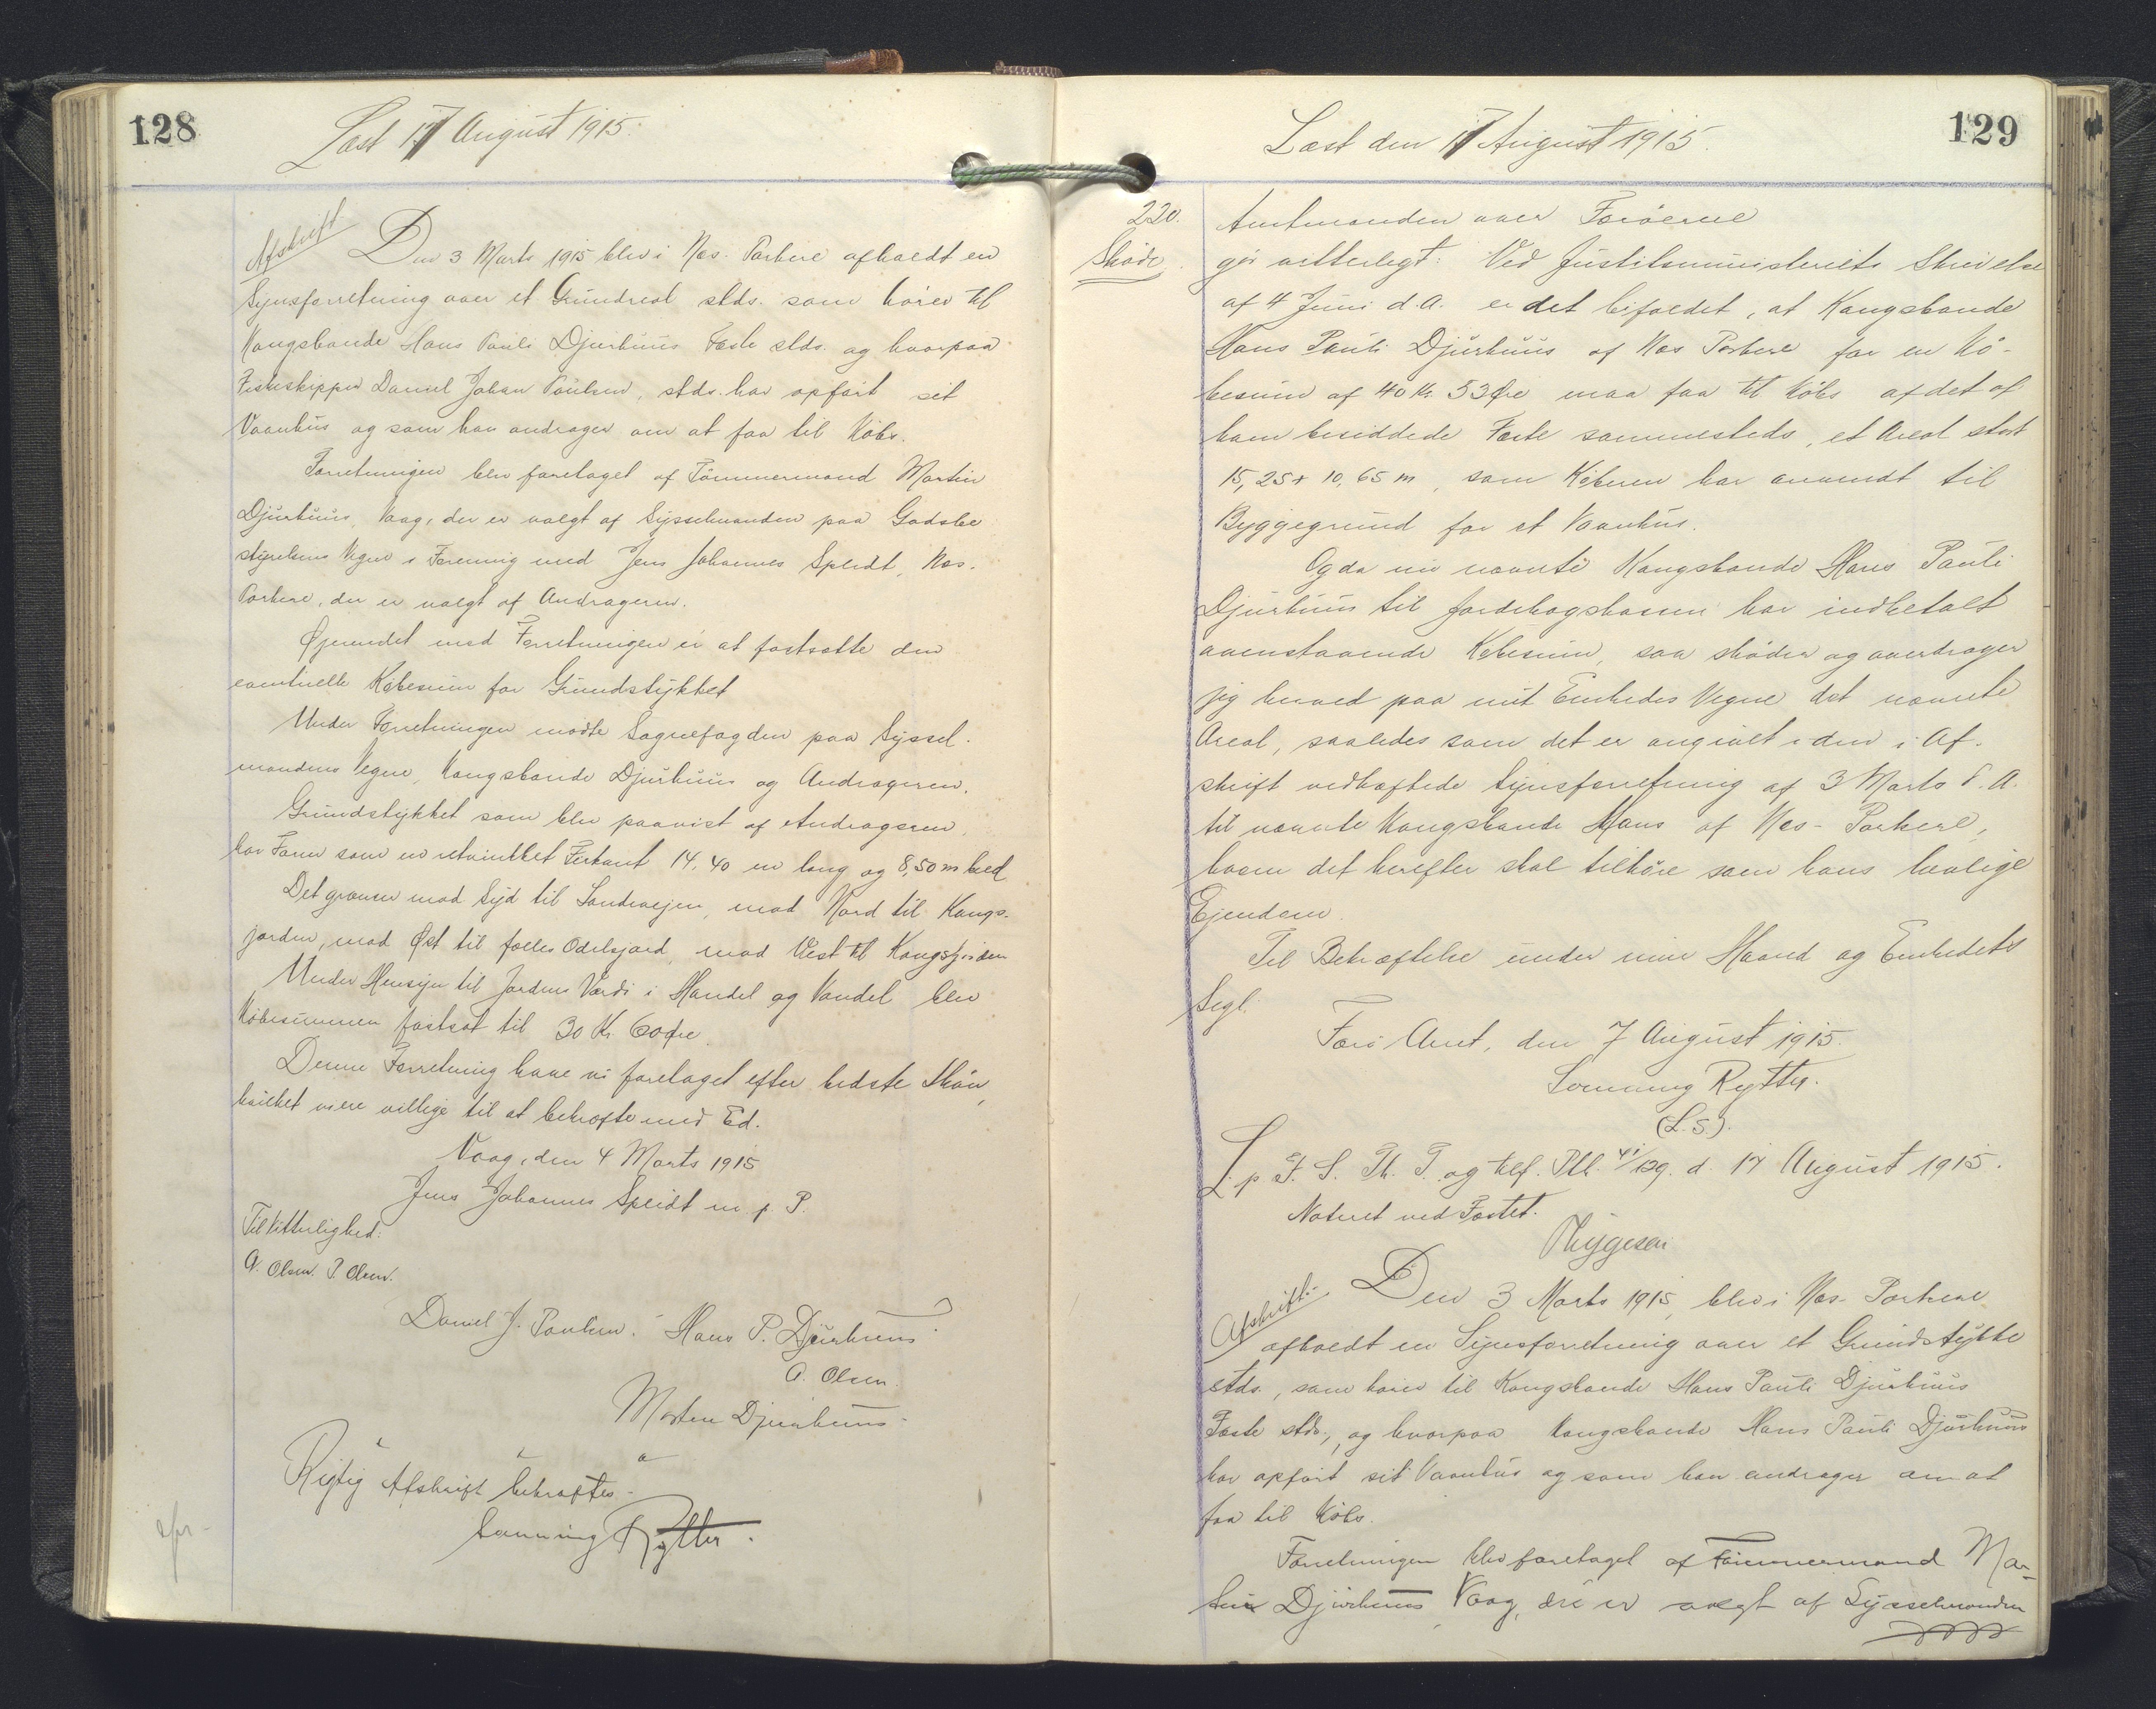 128
Læst 17 August 1915.
Afskrift
Den 3 Marts 1915 blev i Næs-Porkere afholdt en
Synsforretning over et Grundreal stds. som hører til
Kongsbonde Hans Pauli Djurhuus Fæste stds. og hvorpaa
Fiskeskipper Daniel Johan Poulsen, stds. har opført sit
Vaanhus og som han andrager om at faa til Købs.
Forretningen blev foretaget af Tömmermand Martin
Djurhuus, Vaag, der er valgt af Sysselmanden paa Godsbe
styrelsens Vegne i Forening med Jens Johannes Spleidt, Næs-
Porkere, der er valgt af Andrageren.
Øjemedet med Forretningen er at fastsætte den
eventuelle Købesum for Grundstykket
Under Forretningen mødte Sognefogden paa Syssel-
mandens Vegne, Kongsbonde Djurhuus og Andrageren.
Grundstykket som blev paavist af Andrageren,
har Form som en retvinklet Firkant 14,40 m lang og 8,50 m bred
Det grænser mod Syd til Landevejen, mod Nord til Kongs-
jorden, mod Øst til fælles Odelsjord, mod Vest til Kongsjorden
Under Hensyn til Jordens Værdi i Handel og Vandel blev
Købesummen fastsat til 30 Kr. 60 Øre.
Denne Forretning have vi foretaget efter bedste Skön,
hvilket vi ere villige til at bekræfte med Ed.
Vaag, den 4 Marts 1915
Jens Johannes Spleidt m. p. P.
Til Vitterlighed:
A. Olsen. P. Olsen.
Daniel J. Poulsen. Hans P. Djurhuus
A. Olsen.
Martin Djurhuus.
Rigtig Afskrift bekræftes.
Svenning Rytter.
129
Læst den 17 August 1915.
220.
Skøde
Amtmanden over Færöerne
gör vitterligt: Ved Justitsministeriets Skrivelse
af 4 Juni d. A. er det bifaldet, at Kongsbonde
Hans Pauli Djurhuus af Næs Porkere for en Kö-
besum af 40 Kr. 53 Øre maa faa til Købs af det af
ham besiddede Fæste sammesteds, et Areal stort
15,25 x 10,65 m, som Køberen har anvendt til
Byggegrund for et Vaanhus.
Og da nu nævnte Kongsbonde Hans Pauli
Djurhuus til Jordebogskassen har indbetalt
ovenstaaende Købesum, saa skøder og overdrager
jeg herved paa mit Embedes Vegne det nævnte
Areal, saaledes som det er angivet i den i Af-
skrift vedhæftede Synsforretning af 3 Marts d. A.
til nævnte Kongsbonde Hans af Næs-Porkere,
hvem det herefter skal tilhöre som hans lovlige
Ejendom.
Til Bekræftelse under min Haand og Embedets
Segl.
Færø Amt, den 7 August 1915.
Svenning Rytter.
(L.S.).
L. p. F. S. Th. T. og telf. Ptl. 41/129. d. 17 August 1915.
Noteret ved Fæstet.
Thygesen
Afskrift:
Den 3 Marts 1915, blev i Næs-Porkere
afholdt en Synsforretning over et Grundstykke
stds., som hører til Kongsbonde Hans Pauli Djurhuus
Fæste stds., og hvorpaa Kongsbonde Hans Pauli Djurhuus
har opført sit Vaanhus og som han andrager om at
faa til Købs.
Forretningen blev foretaget af Tömmermand Mar-
tin Djurhuus, Vaag, der er valgt af Sysselmanden